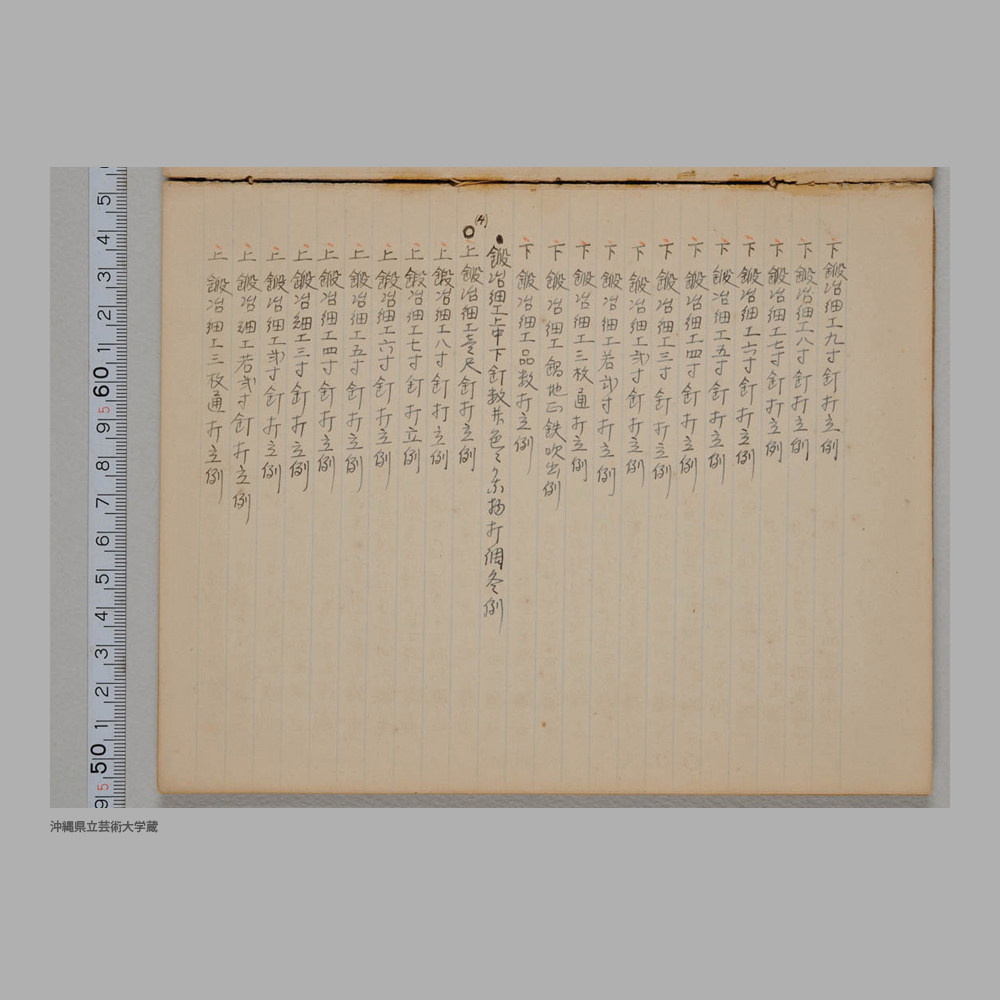 下 鍛冶細工九寸釘打立例
下 鍛冶細工八寸釘打立例
下 鍛冶細工七寸釘打立例
下 鍛冶細工六寸釘打立例
下 鍛冶細工五寸釘打立例
下 鍛冶細工四寸釘打立例
下 鍛冶細工三寸釘打立例
下 鍛冶細工弐寸釘打立例
下 鍛冶細工若弐寸打立例
下 鍛冶細工三枚通打立例
下 鍛冶細工 地正鉄吹出例
下 鍛冶細工品数打立例
鍛冶細工上中下釘数共色々 物打調冬例
(4)
上 鍛冶細工壱尺釘打立例
上 鍛冶細工八寸釘打立例
上 鍛冶細工七寸釘打立例
上 鍛冶細工六寸釘打立例
上 鍛冶細工五寸釘打立例
上 鍛冶細工四寸釘打立例
上 鍛冶細工三寸釘打立例
上 鍛冶細工弐寸釘打立例
上 鍛冶細工若弐寸釘打立例
上 鍛冶細工三枚通打立例
5
4
3
2
1
60
5
9
8
7
6
5
4
3
2
1
50
5
9
沖縄県立芸術大学蔵